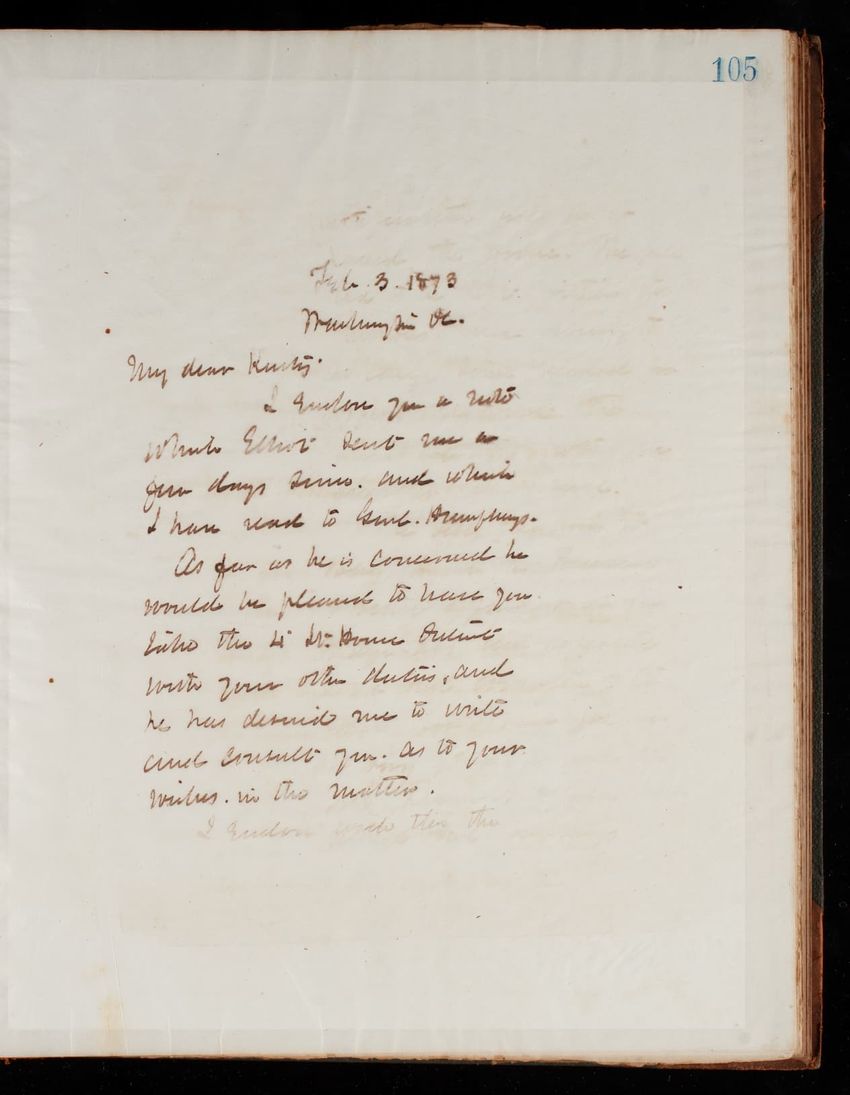 105
Feb. 3. 1873
Washington DC.
My dear Kurtz.
I enclose you a note
which Elliot sent me a
few days since. and which
I have read to Genl. Humphreys.
As far as he is concerned he
would be pleased to have you
take the 4" Lt. House District
with your other duties, and
he has desired me to write
and consult you. as to your
wishes. in the matter.
I enclose with this the